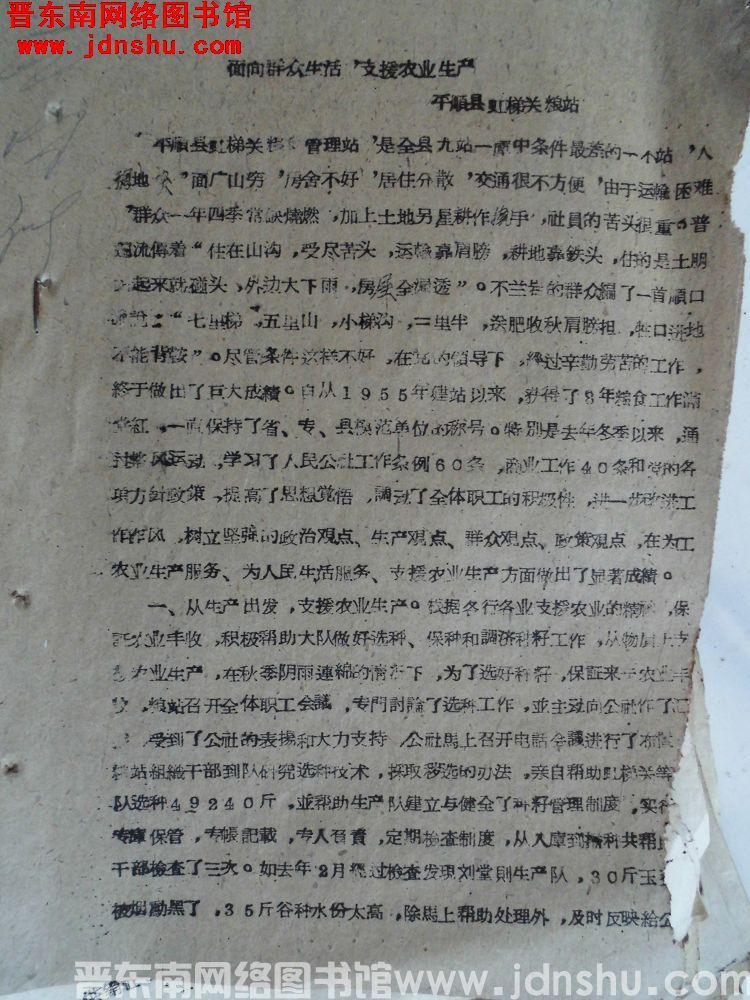 晋东南网络图书馆
www.jdnshu.com
面向群众生活，支援农业生产
平順县虹梯关粮站
平順县虹梯关粮 管理站，是全县九站一庫中条件最差的一个站，人
地 ，面广山穷，房舍不好，居住分散，交通很不方便，由于运輸困难
，群众一年四季常缺燒燃，加上土地另星耕作 手，社員的苦头很重。普
遍流傳着“住在山沟，受尽苦头，运輸靠肩膀，耕地靠鉄头，住的是土朋
起来就碰头，外边大下雨，房屋全漏透”。不兰岩的群众編了一首順口
說：“七里梯，五里山，小梯沟，二里半，送肥收秋肩膀担，牲口进地
不能背鞍”。尽管条件这样不好，在党的領导下，經过辛勤劳苦的工作，
終于做出了巨大成績。自从1955年建站以来，获得了8年粮食工作滿
堂紅，一直保持了省、专、县模范单位的称号。特别是去年冬季以来，通
过整风运动，学习了人民公社工作条例60条，商业工作40条和党的各
項方針政策，提高了思想覚悟，調动了全体职工的积极性，进一步改进工
作作风，树立坚强的政治观点、生产观点、群众观点、政策观点，在为工
农业生产服务、为人民生活服务、支援农业生产方面做出了显著成績。
一、从生产出发，支援农业生产。根据各行各业支援农业的精神，保
証农业丰收，积极帮助大队做好选种、保种和調济籽种工作，从物质上支
农业生产，在秋季阴雨連綿的情况下，为了选好种籽，保証来年农业丰
，粮站召开全体职工会議，专門討論了选种工作，並主动向公社作了汇
受到了公社的表揚和大力支持，公社馬上召开电話会議进行了布置
粮站組織干部到队研究选种技术，採取移选的办法，亲自帮助虹梯关等
队选种49240斤，並帮助生产队建立与健全了种籽管理制度，实行
专庫保管，专帳記載，专人召責，定期检查制度，从入庫到播种共帮
干部檢查了三次。如去年2月經过检查发現刘堂則生产队，30斤玉
被烟勋黑了，35斤谷种水份太高，除馬上帮助处理外，及时反映給公
晋东南网络图书馆www.jdnshu.com